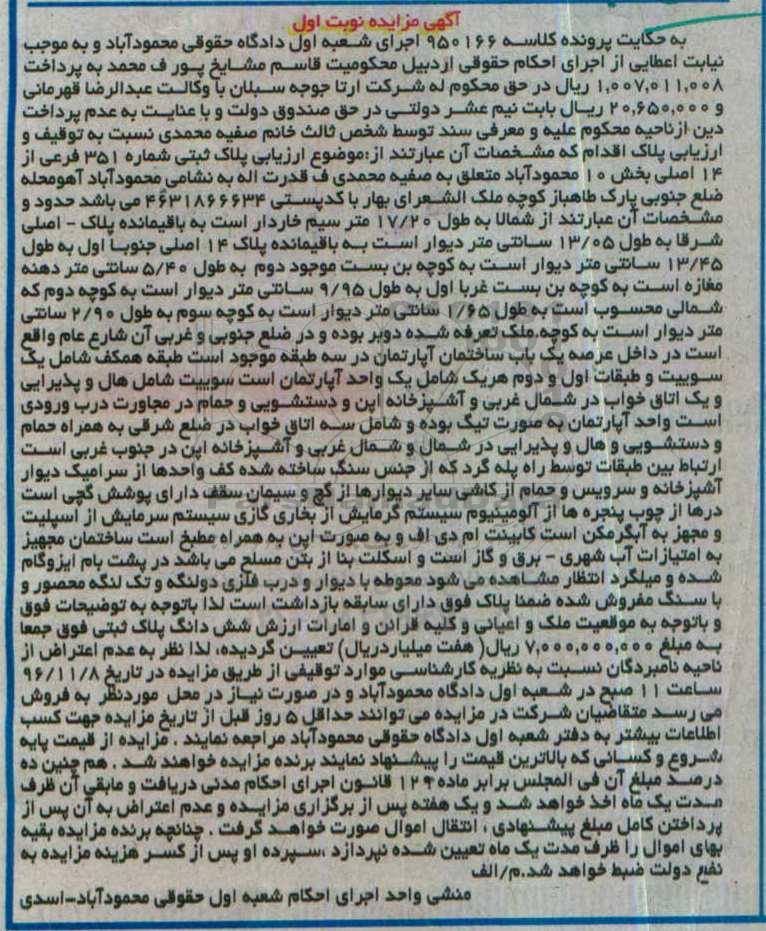 آگهی مزایده نوبت اول
به حکایت پرونده کلاسه ۹۵۰۱۶۶ اجرای شعبه اول دادگاه حقوقی محمودآباد و به موجب
نیابت اعطایی از اجرای احکام حقوقی اردبیل محکومیت قاسم مشایخ پور ف محمد به پرداخت
۱,۰۰۷,۰۱۱,۰۰۸ ریال در حق محکوم له شرکت ارتا جوجه سبلان با وکالت عبدالرضا قهرمانی
و ۲۰,۶۵۰,۰۰۰ ریال بابت نیم عشر دولتی در حق صندوق دولت و با عنایت به عدم پرداخت
دین ازناحیه محکوم علیه و معرفی سند توسط شخص ثالث خانم صفیه محمدی نسبت به توقیف و
ارزیابی پلاک اقدام که مشخصات آن عبارتند از:موضوع ارزیابی پلاک ثبتی شماره ۳۵۱ فرعی از
۱۴ اصلی بخش ۱۰ محمودآباد متعلق به صفیه محمدی ف قدرت اله به نشامی محمودآباد آهومحله
ضلع جنوبی پارک طاهباز کوچه ملک الشعرای بهار با کدپستی ۴۶۳۱۸۶۶۶۳۴ می باشد حدود و
مشخصات آن عبارتند از شمالا به طول ۱۷/۲۰ متر سیم خاردار است به باقیمانده پلاک - اصلی
شرقا به طول ۱۳/۰۵ سانتی متر دیوار است به باقیمانده پلاک ۱۴ اصلی جنوبا اول به طول
۱۳/۴۵ سانتی متر دیوار است به کوچه بن بست موجود دوم به طول ۵/۴۰ سانتی متر دهنه
مغازه است به کوچه بن بست غربا اول به طول ۹/۹۵ سانتی متر دیوار است به کوچه دوم که
شمالی محسوب است به طول ۱/۶۵ سانتی متر دیوار است به کوچه سوم به طول ۲/۹۰ سانتی
متر دیوار است به کوچه.ملک تعرفه شده دوبر بوده و در ضلع جنوبی و غربی آن شارع عام واقع
است در داخل عرصه یک باب ساختمان آپارتمان در سه طبقه موجود است طبقه همکف شامل یک
سوییت و طبقات اول و دوم هریک شامل یک واحد آپارتمان است سوییت شامل هال و پذیرایی
و یک اتاق خواب در شمال غربی و آشپزخانه اپن و دستشویی و حمام در مجاورت درب ورودی
است واحد آپارتمان به صورت تیگ بوده و شامل سه اتاق خواب در ضلع شرقی به همراه حمام
و دستشویی و هال و پذیرایی در شمال و شمال غربی و آشپزخانه اپن در جنوب غربی است
ارتباط بین طبقات توسط راه پله گرد که از جنس سنگ ساخته شده کف واحدها از سرامیک دیوار
آشپزخانه و سرویس و حمام از کاشی سایر دیوارها از گچ و سیمان سقف دارای پوشش گچی است
درها از چوب پنجره ها از آلومینیوم سیستم گرمایش از بخاری گازی سیستم سرمایش از اسپلیت
و مجهز به آبگرمکن است کابینت ام دی اف و به صورت اپن به همراه مطبخ است ساختمان مجهیز
به امتیازات آب شهری - برق و گاز است و اسکلت بنا از بتن مسلح می باشد در پشت بام ایزوگام
شده و میلگرد انتظار مشاهده می شود محوطه با دیوار و درب فلزی دولنگه و تک لنگه محصور و
با سنگ مفروش شده ضمنا پلاک فوق دارای سابقه بازداشت است لذا باتوجه به توضیحات فوق
و باتوجه به موقعیت ملک و اعیانی و کلیه قرائن و امارات ارزش شش دانگ پلاک ثبتی فوق جمعا
به مبلغ ۷,۰۰۰,۰۰۰,۰۰۰ ریال( هفت میلیاردریال) تعیین گردیده، لذا نظر به عدم اعتراض از
ناحیه نامبردگان نسبت به نظریه کارشناسی موارد توقیفی از طریق مزایده در تاریخ ۹۶/۱۱/۸
ساعت ۱۱ صبح در شعبه اول دادگاه محمودآباد و در صورت نیاز در محل موردنظر به فروش
می رسد متقاضیان شرکت در مزایده می توانند حداقل ۵ روز قبل از تاریخ مزایده جهت کسب
اطلاعات بیشتر به دفتر شعبه اول دادگاه حقوقی محمودآباد مراجعه نمایند . مزایده از قیمت پایه
شروع و کسانی که بالاترین قیمت را پیشنهاد نمایند برنده مزایده خواهند شد . هم چنین ده
درصد مبلغ آن فی المجلس برابر ماده ۱۲۹ قانون اجرای احکام مدنی دریافت و مابقی آن ظرف
مدت یک ماه اخذ خواهد شد و یک هفته پس از برگزاری مزایده و عدم اعتراض به آن پس از
پرداختن کامل مبلغ پیشنهادی ، انتقال اموال صورت خواهد گرفت . چنانچه برنده مزایده بقیه
بهای اموال را ظرف مدت یک ماه تعیین شده نپردازد ،سپرده او پس از کسر هزینه مزایده به
نفع دولت ضبط خواهد شد.م/الف
منشی واحد اجرای احکام شعبه اول حقوقی محمودآباد-اسدی